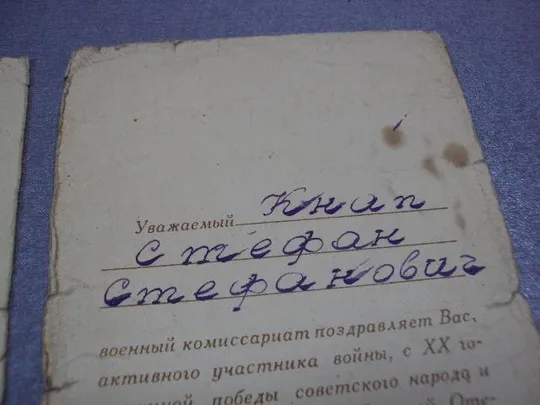 Уважаемый Кнап
Стефан
Стефанович
военный комиссариат поздравляет Вас,
активного участника войны, с XX го-
победы советского народа и
Оте-